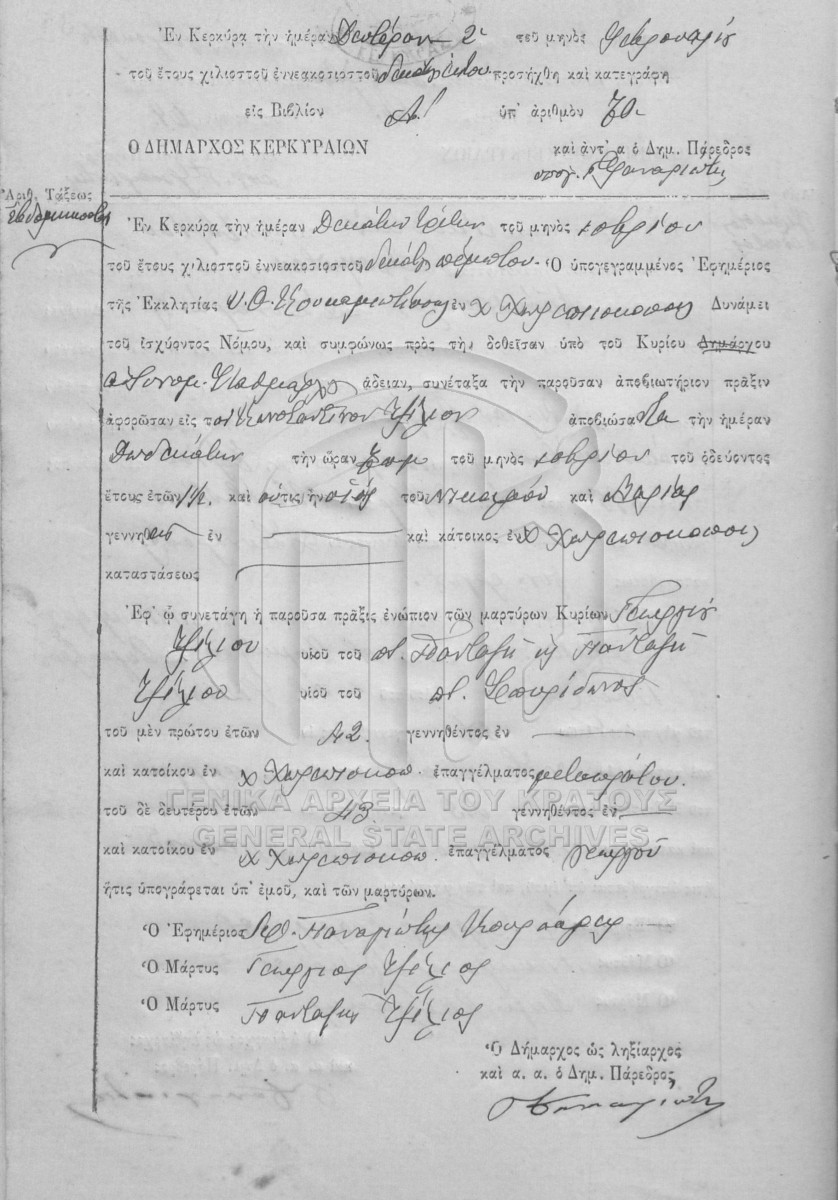 Ἐν Κερκύρᾳ τὴν ἡμέραν Δευτέραν 2 τοῦ μηνὸς Φεβρουαρίου
τοῦ ἔτους χιλιοστοῦ ἐννεακοσιοστοῦ δεκάτου ἕκτου προσήχθη καὶ κατεγράφη
εἰς Βιβλίον Α! ὑπ' ἀριθμὸν 70
Ο ΔΗΜΑΡΧΟΣ ΚΕΡΚΥΡΑΙΩΝ καὶ ἀντ' α ὁ Δημ. Πάρεδρος
υπογ.
Ἀριθ. Τάξεως
Ἐν Κερκύρᾳ τὴν ἡμέραν Δεκάτην τρίτην τοῦ μηνὸς
τοῦ ἔτους χιλιοστοῦ ἐννεακοσιοστοῦ δεκάτου πέμπτου. Ὁ ὑπογεγραμμένος Ἐφημέριος
τῆς Ἐκκλησίας Υ. Θ. ἐν χ Χωρεπισκόπους Δυνάμει
τοῦ ἰσχύοντος Νόμου, καὶ συμφώνως πρὸς τὴν δοθεῖσαν ὑπὸ τοῦ Κυρίου Δημάρχου
ἄδειαν, συνέταξα τὴν παροῦσαν ἀποβιωτήριον πρᾶξιν
ἀφορῶσαν εἰς τὸν Κωνσταντῖνον Τζίλιον ἀποβιώσαντα τὴν ἡμέραν
Δωδεκάτην τὴν ὥραν τοῦ μηνὸς τοῦ ὁδεύοντος
ἔτους ἐτῶν 1½ καὶ οὗτις ἦν υἱὸς τοῦ Νικολάου καὶ Μαρίας
γεννηθεὶς ἐν καὶ κάτοικος ἐν χ Χωρεπισκόπους
καταστάσεως
Ἐφ' ᾧ συνετάγη ἡ παροῦσα πρᾶξις ἐνώπιον τῶν μαρτύρων Κυρίων Γεωργίου
Τζίλιου υἱοῦ τοῦ π. Πανταζῆ καὶ Πανταζῆ
Τζίλιου υἱοῦ τοῦ π. Σπυρίδωνος
τοῦ μὲν πρώτου ἐτῶν 42. γεννηθέντος ἐν
καὶ κατοίκου ἐν χ Χωρεπισκοπ. ἐπαγγέλματος
τοῦ δὲ δευτέρου ἐτῶν 43 γεννηθέντος ἐν
καὶ κατοίκου ἐν χ Χωρεπισκοπ. ἐπαγγέλματος γεωργοῦ
ἥτις ὑπογράφεται ὑπ' ἐμοῦ, καὶ τῶν μαρτύρων.
Ὁ Ἐφημέριος Παναγιώτης
Ὁ Μάρτυς Γεώργιος Τζίλιος
Ὁ Μάρτυς Πανταζῆς Τζίλιος
Ὁ Δήμαρχος ὡς ληξίαρχος
καὶ α. α. ὁ Δημ. Πάρεδρος
ΓΕΝΙΚΑ ΑΡΧΕΙΑ ΤΟΥ ΚΡΑΤΟΥΣ
GENERAL STATE ARCHIVES